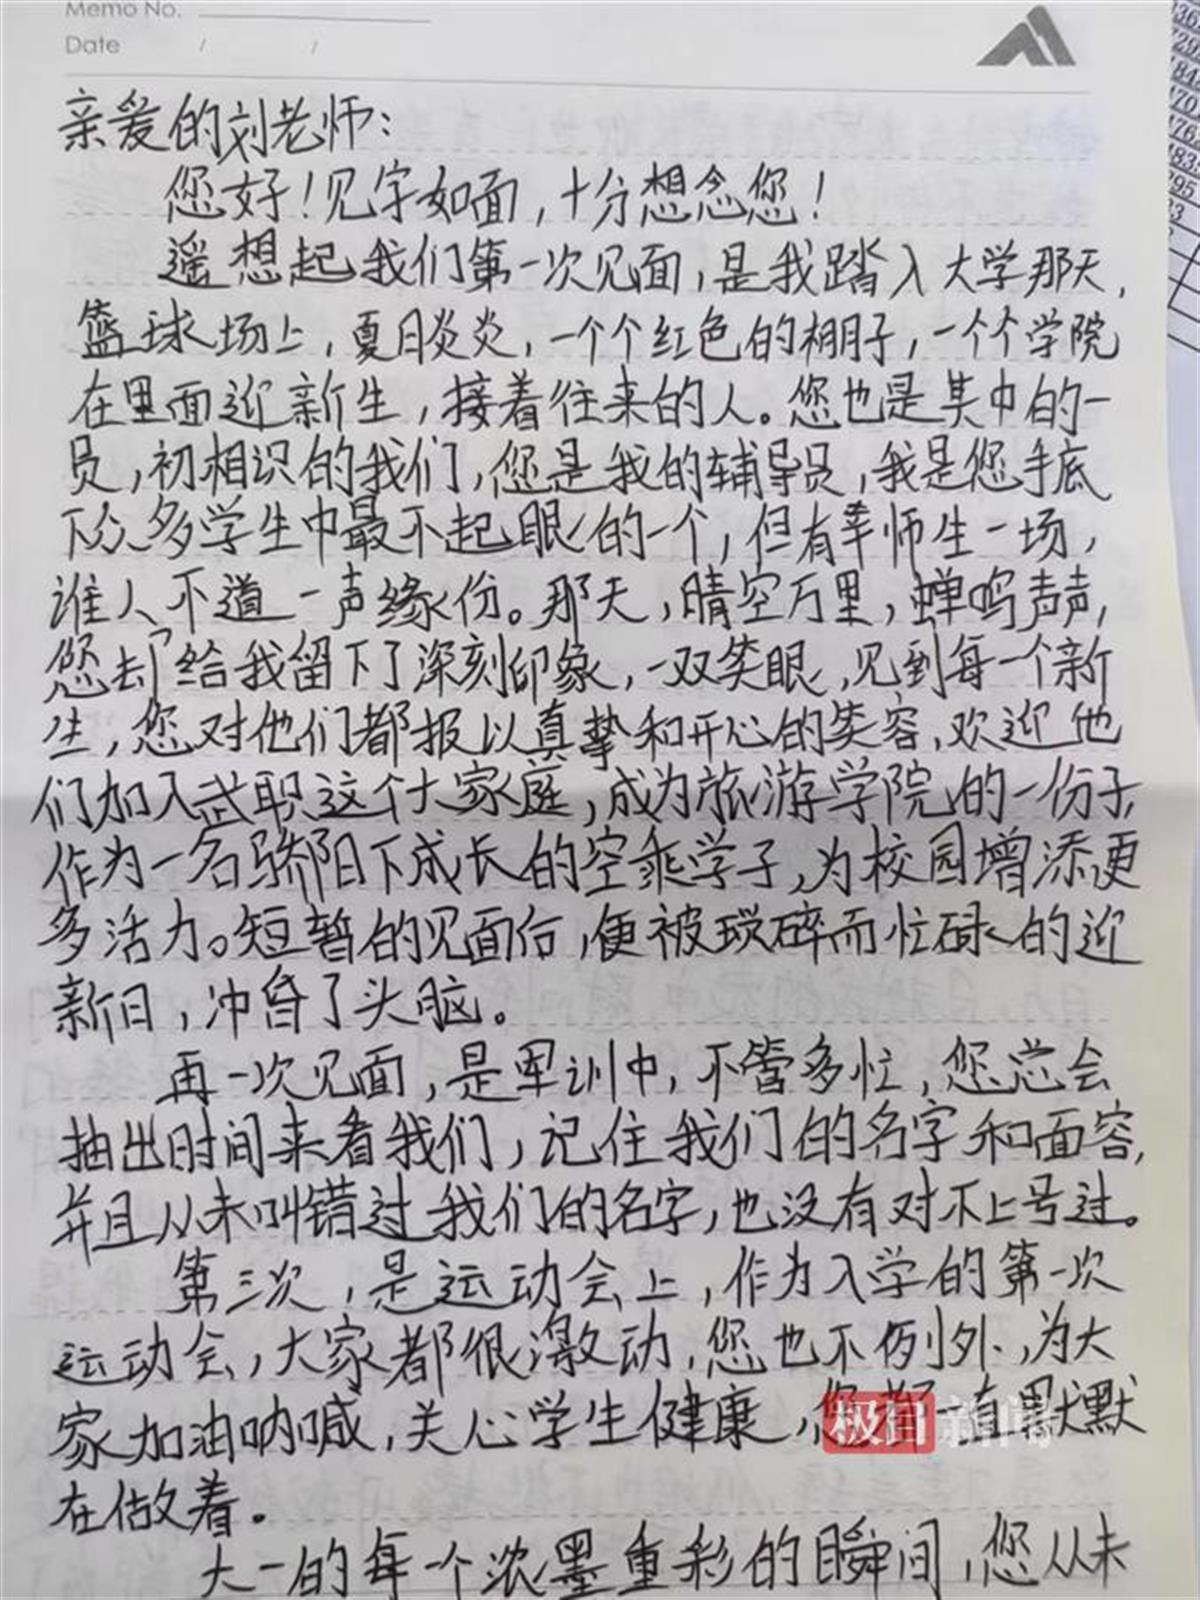 Memo No.
Date / /
亲爱的刘老师:
您好!见字如面,十分想念您!
遥想起我们第一次见面,是我踏入大学那天,
篮球场上,夏日炎炎,一个个红色的棚子,一个个学院
在里面迎新生,接着往来的人。您也是其中的一
员,初相识的我们,您是我的辅导员,我是您手底
下众多学生中最不起眼的一个,但有幸师生一场,
谁人不道一声缘份。那天,晴空万里,蝉鸣声声,
您却给我留下了深刻印象,一双笑眼,见到每一个新
生,您对他们都报以真挚和开心的笑容,欢迎他
们加入武职这个大家庭,成为旅游学院的一份子,
作为一名骄阳下成长的空乘学子,为校园增添更
多活力。短暂的见面后,便被琐碎而忙碌的迎
新日,冲昏了头脑。
再一次见面,是军训中,不管多忙,您总会
抽出时间来看我们,记住我们的名字和面容,
并且从未叫错过我们的名字,也没有对不上号过。
第三次,是运动会上,作为入学的第一次
运动会,大家都很激动,您也不例外,为大
家加油呐喊,关心学生健康,您都一直默默
在做着。
大一的每一个浓墨重彩的瞬间,您从未
极目新闻